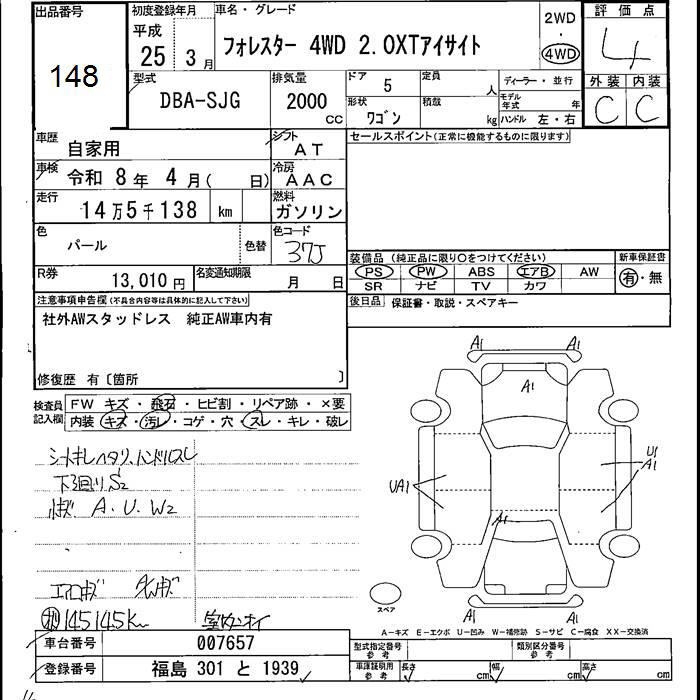 出品番号
148
初度登録年月
平成
25 3月
車名・グレード
フォレスター 4WD 2.0XTアイサイト
2WD
・
4WD
評価点
4
外装 内装
C C
型式
DBA-SJG
排気量
2000
CC
ドア
5
定員
人
形状
ワゴン
積載
kg
ディーラー・並行
モデル年式 年
ハンドル 左・右
車歴
自家用
シフト
AT
車検
令和 8年 4月( 日)
冷房
AAC
走行
14万5千138 km
燃料
ガソリン
色
パール
色替
色コード
37J
R券
13,010円
名変通知期限
月 日
セールスポイント(正常に機能するものに限ります)
装備品 (純正品に限り○をつけてください)
新車保証書
PS PW ABS エアB AW
SR ナビ TV カワ
有・無
後日品 保証書・取説・スペアキー
注意事項申告欄(不具合内容等は具体的に記入して下さい)
社外AWスタッドレス 純正AW車内有
修復歴 有〔箇所 〕
検査員記入欄
FW キズ・飛石・ヒビ割・リペア跡・×要
内装 キズ・汚れ・コゲ・穴・スレ・キレ・破レ
シートキレヘタリ、ハンドルスレ
下廻りS2
小キズ A.U.W2
エアロキズ
145145km
A1 A1
A1
U1
A1
UA1
A1
A1 A1
スペア
A-キズ E-エクボ U-凹み W-補修跡 S-サビ C-腐食 XX-交換済
車台番号 007657
登録番号 福島 301 と 1939
型式指定番号 参考
類別区分番号 参考
車庫証明用 参考
長さ cm 幅 cm 高さ cm